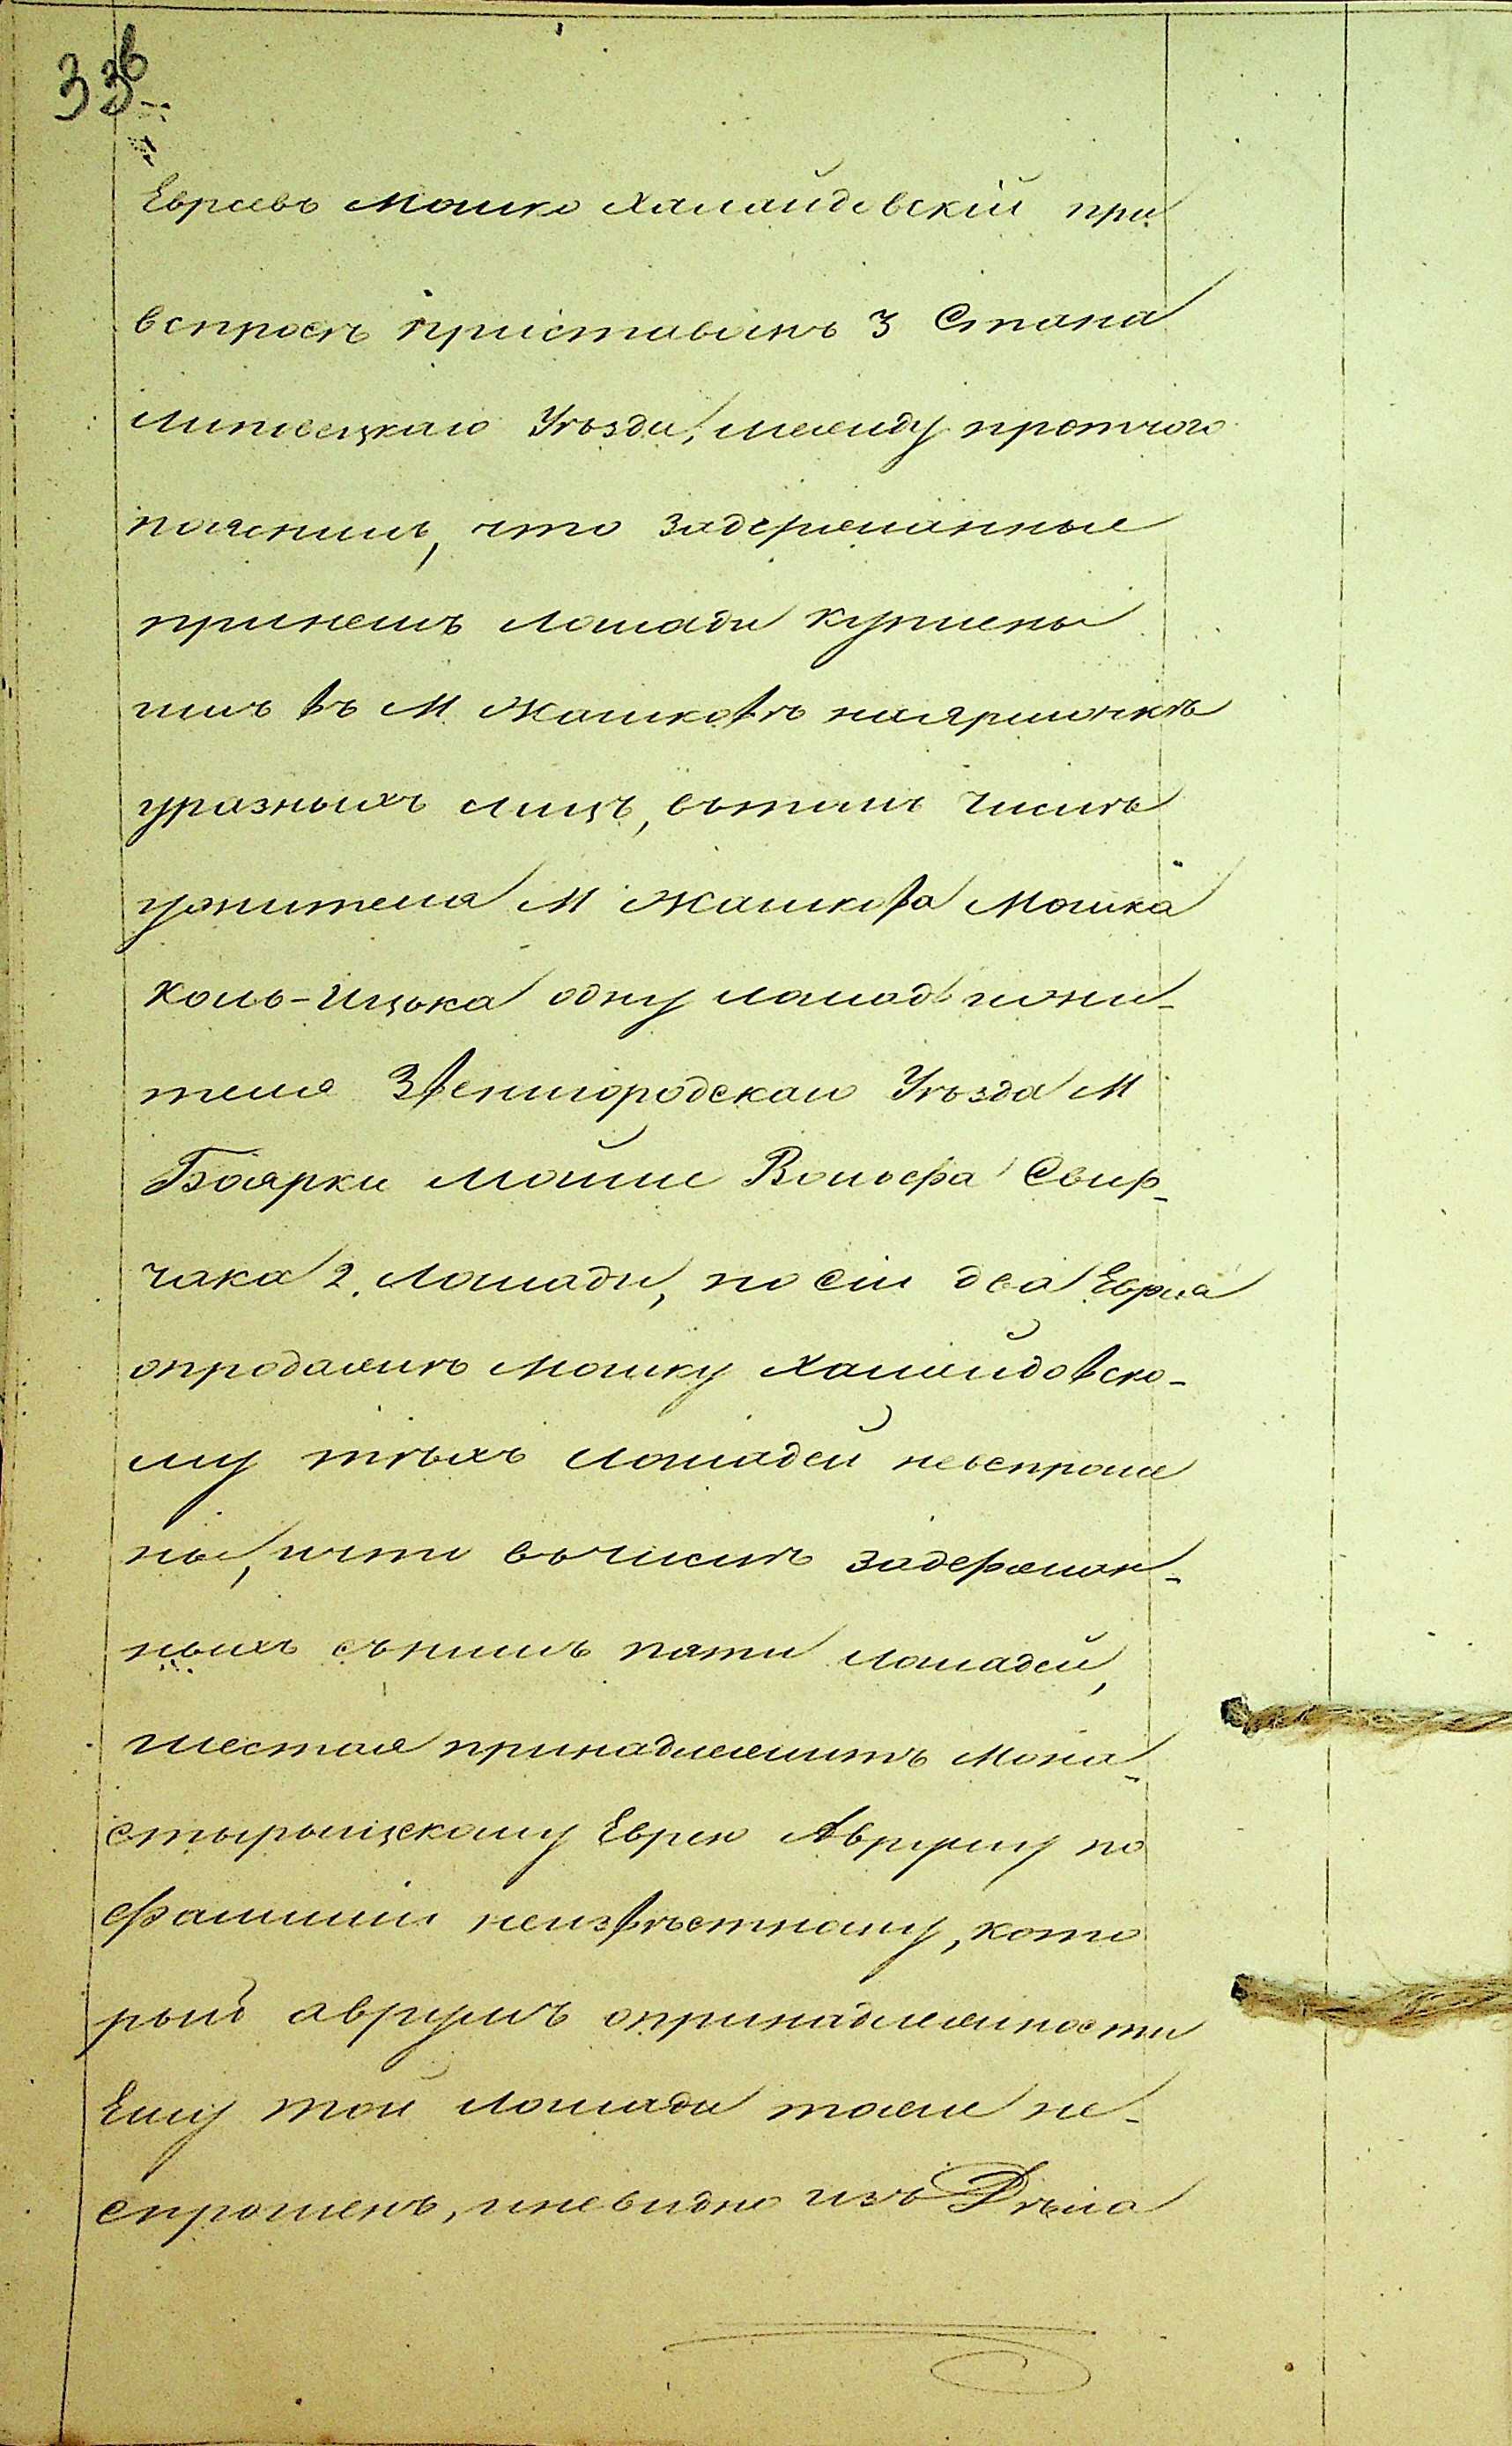 336
Евреевъ Мошко Халайдовскій при
вспросѣ приставомъ 3 Стана
Липовецкаго Уѣзда, между протчого
пояснилъ, что задержанные
принемъ лошади куплены
имъ въ М Жашковѣ наярмонкѣ
уразныхъ лицъ, вътомъ числѣ
ужителя М Жашкова Мошка
Коль-Ицька одну лошадь ижи-
теля Звенигородскаго Уѣзда М
Боярки Мойше Вольфа Свир-
чака 2. лошади, но сіи два Еврея
опродажѣ Мошку Халайдовско-
му тѣхъ лошадей невспроше
ны, ичто въчислѣ задержан-
ныхъ сънимъ пяти лошадей,
шестая принадлежитъ Мона-
стырыщскому Еврею Авруму по
фамиліи неизвѣстному, кото
рый Аврумъ опринадлежности
Ему той лошади тоже не-
спрошенъ, иневидно изъ Дѣла